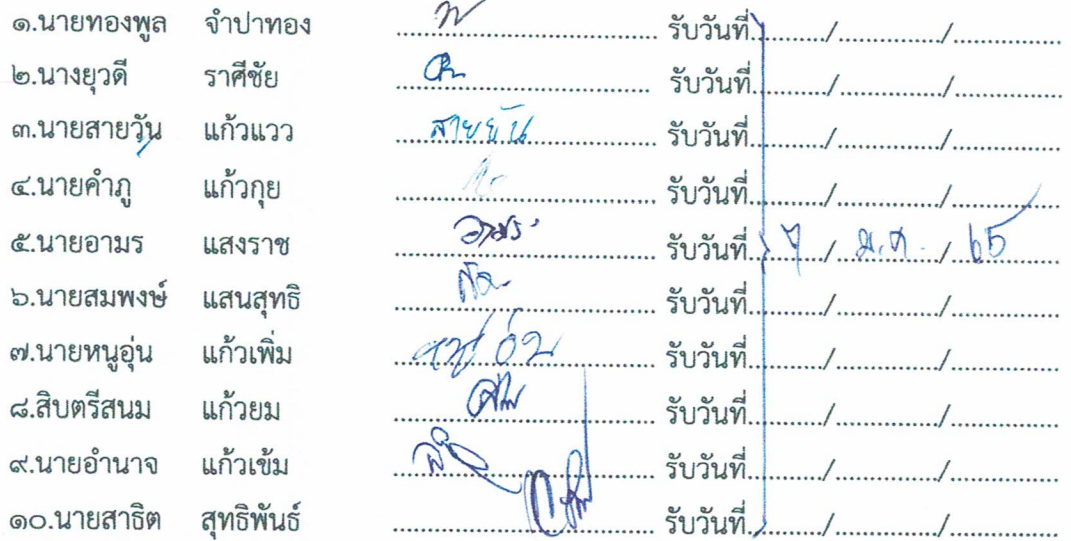 ๑.นายทองพูล จำปาทอง ........................................ รับวันที่............/................/................
๒.นางยุวดี ราศีชัย ........................................ รับวันที่............/................/................
๓.นายสายวัน แก้วแวว สายยัน รับวันที่............/................/................
๔.นายคำภู แก้วกุย ........................................ รับวันที่............/................/................
๕.นายอามร แสงราช อามร รับวันที่ ๆ / ม.ค. / ๖๕
๖.นายสมพงษ์ แสนสุทธิ ........................................ รับวันที่............/................/................
๗.นายหนูอุ่น แก้วเพิ่ม หนูอุ่น รับวันที่............/................/................
๘.สิบตรีสนม แก้วยม ........................................ รับวันที่............/................/................
๙.นายอำนาจ แก้วเข้ม ........................................ รับวันที่............/................/................
๑๐.นายสาธิต สุทธิพันธ์ ........................................ รับวันที่............/................/................